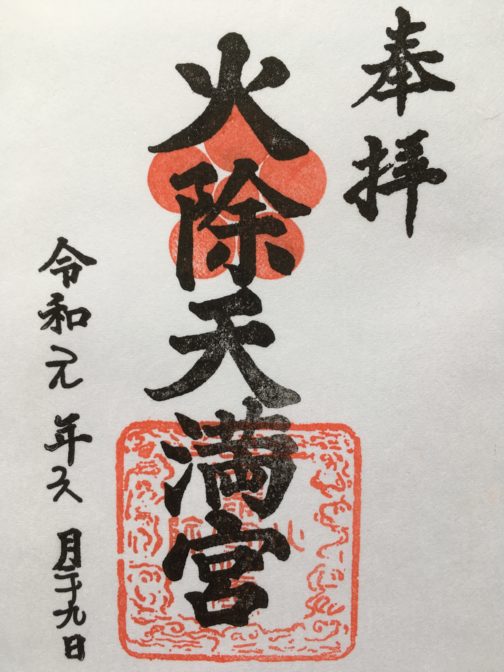 奉拝
火除天満宮
令和元年 月二十九日